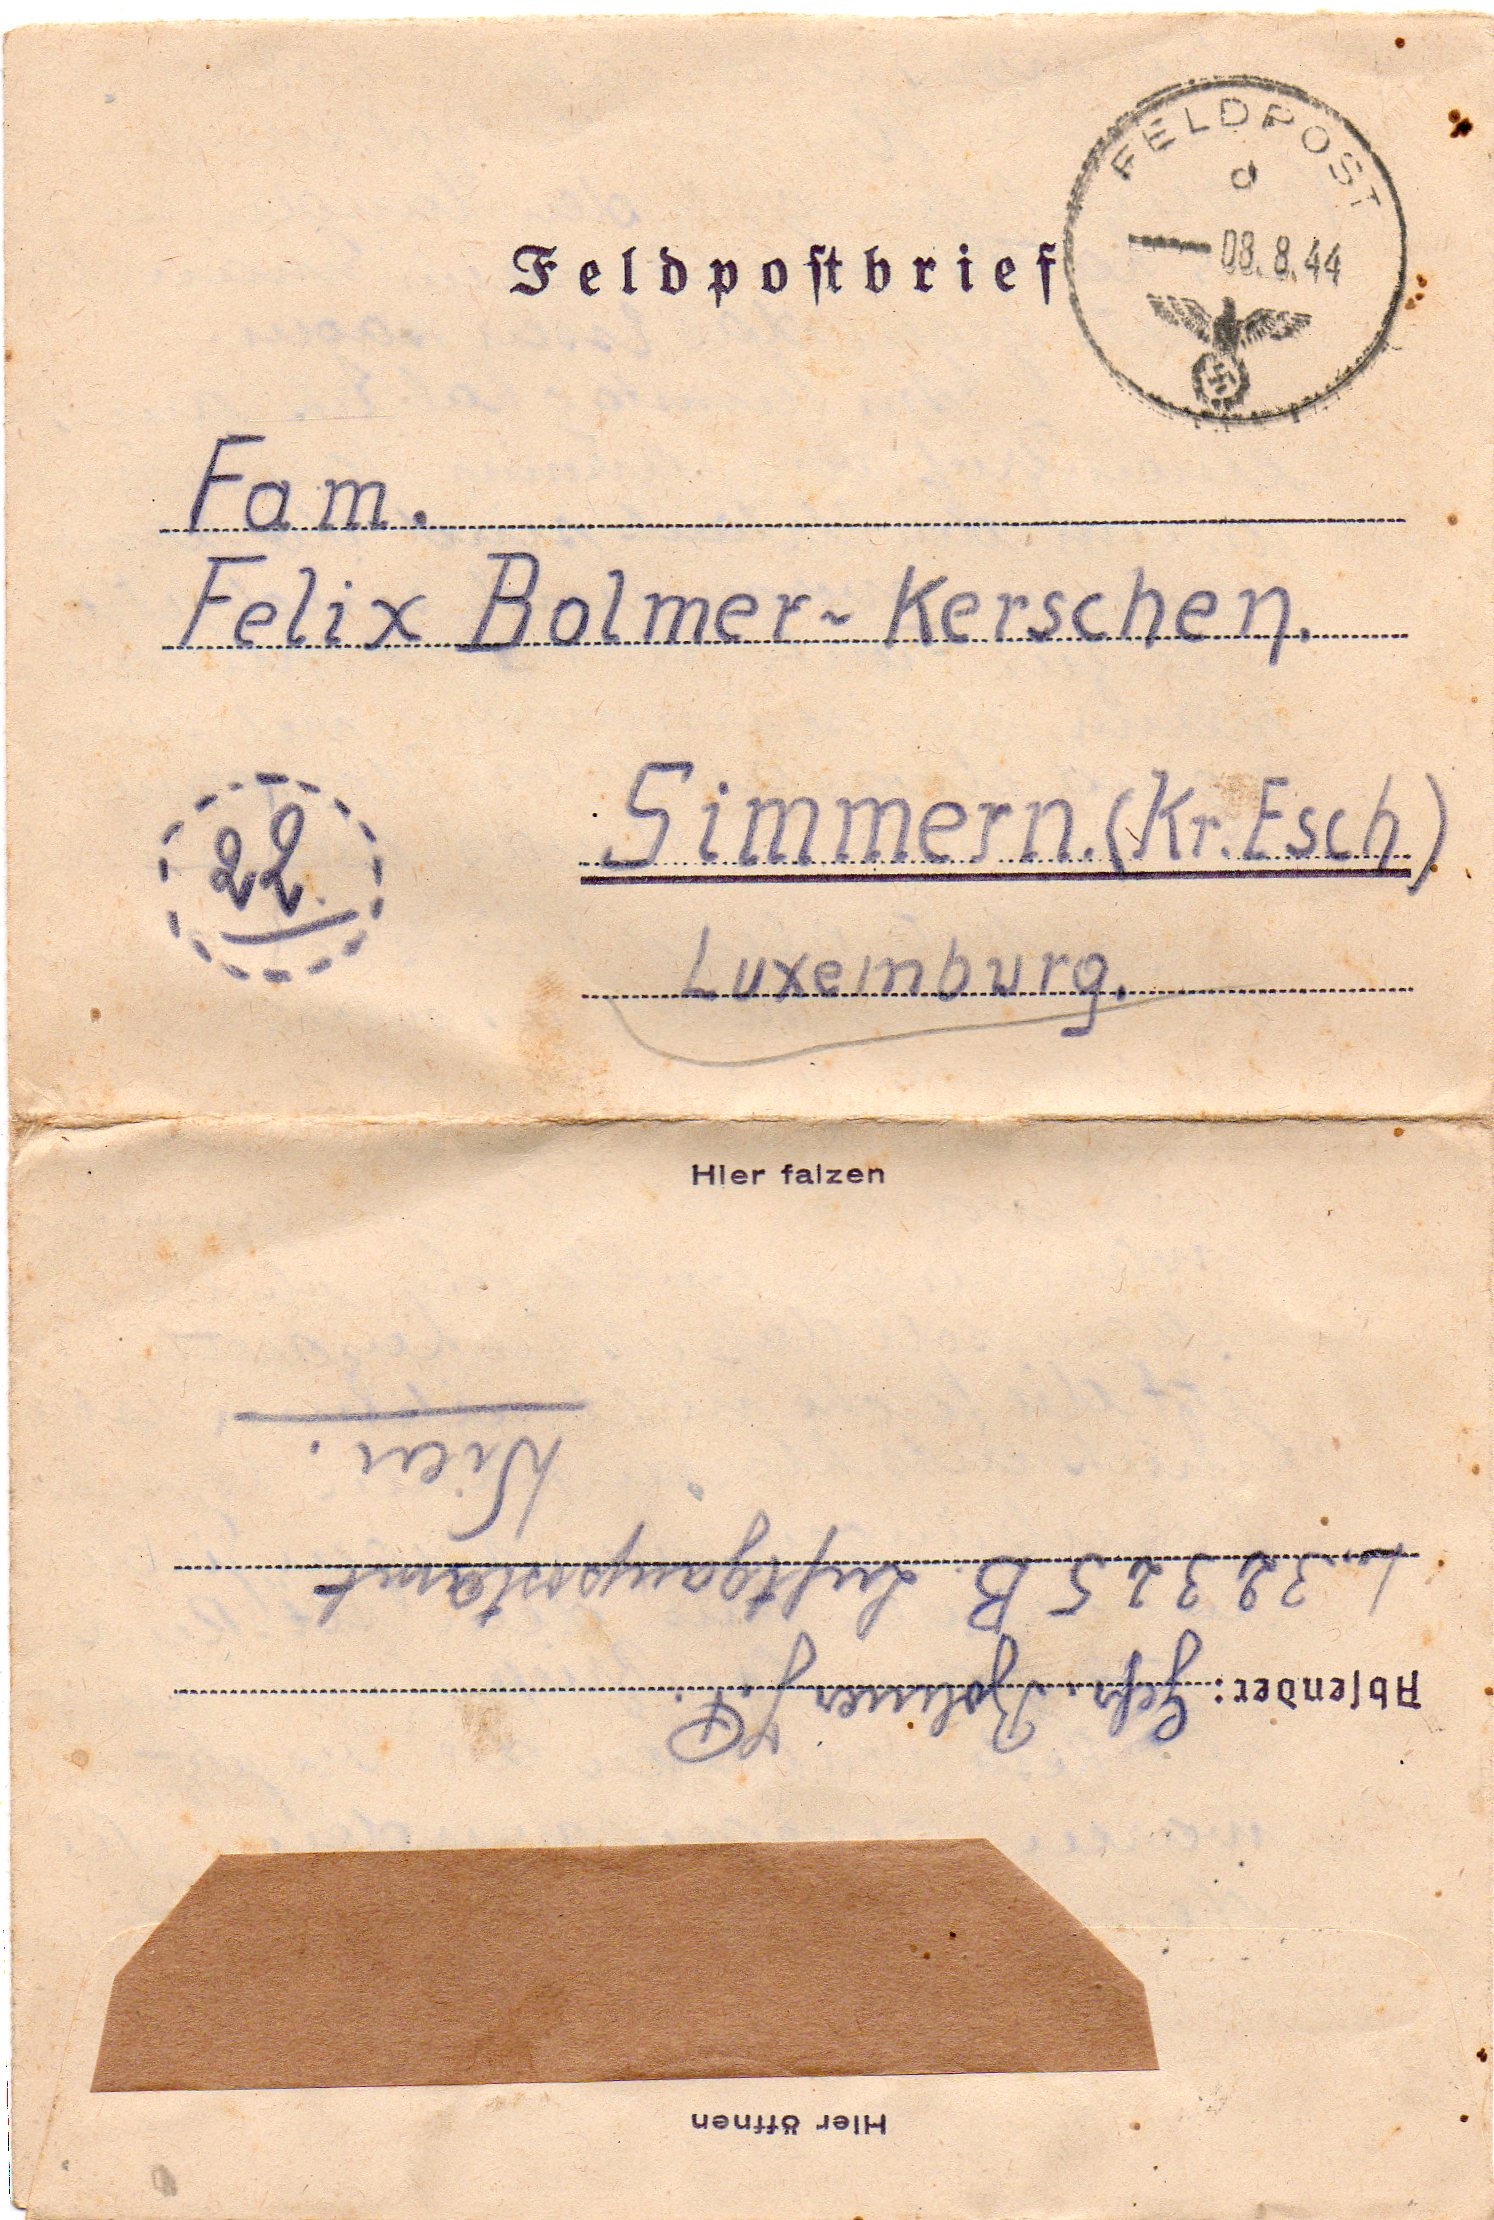 FELDPOST
d
08.8.44
Feldpostbrief
Fam.
Felix Bolmer-Kerschen.
22.
Simmern.(Kr.Esch)
Luxemburg.
Hier falzen
Absender: Gefr. Bolmer J. P.
L. 32325 B. Luftgaupostamt
Wien.
Hier öffnen